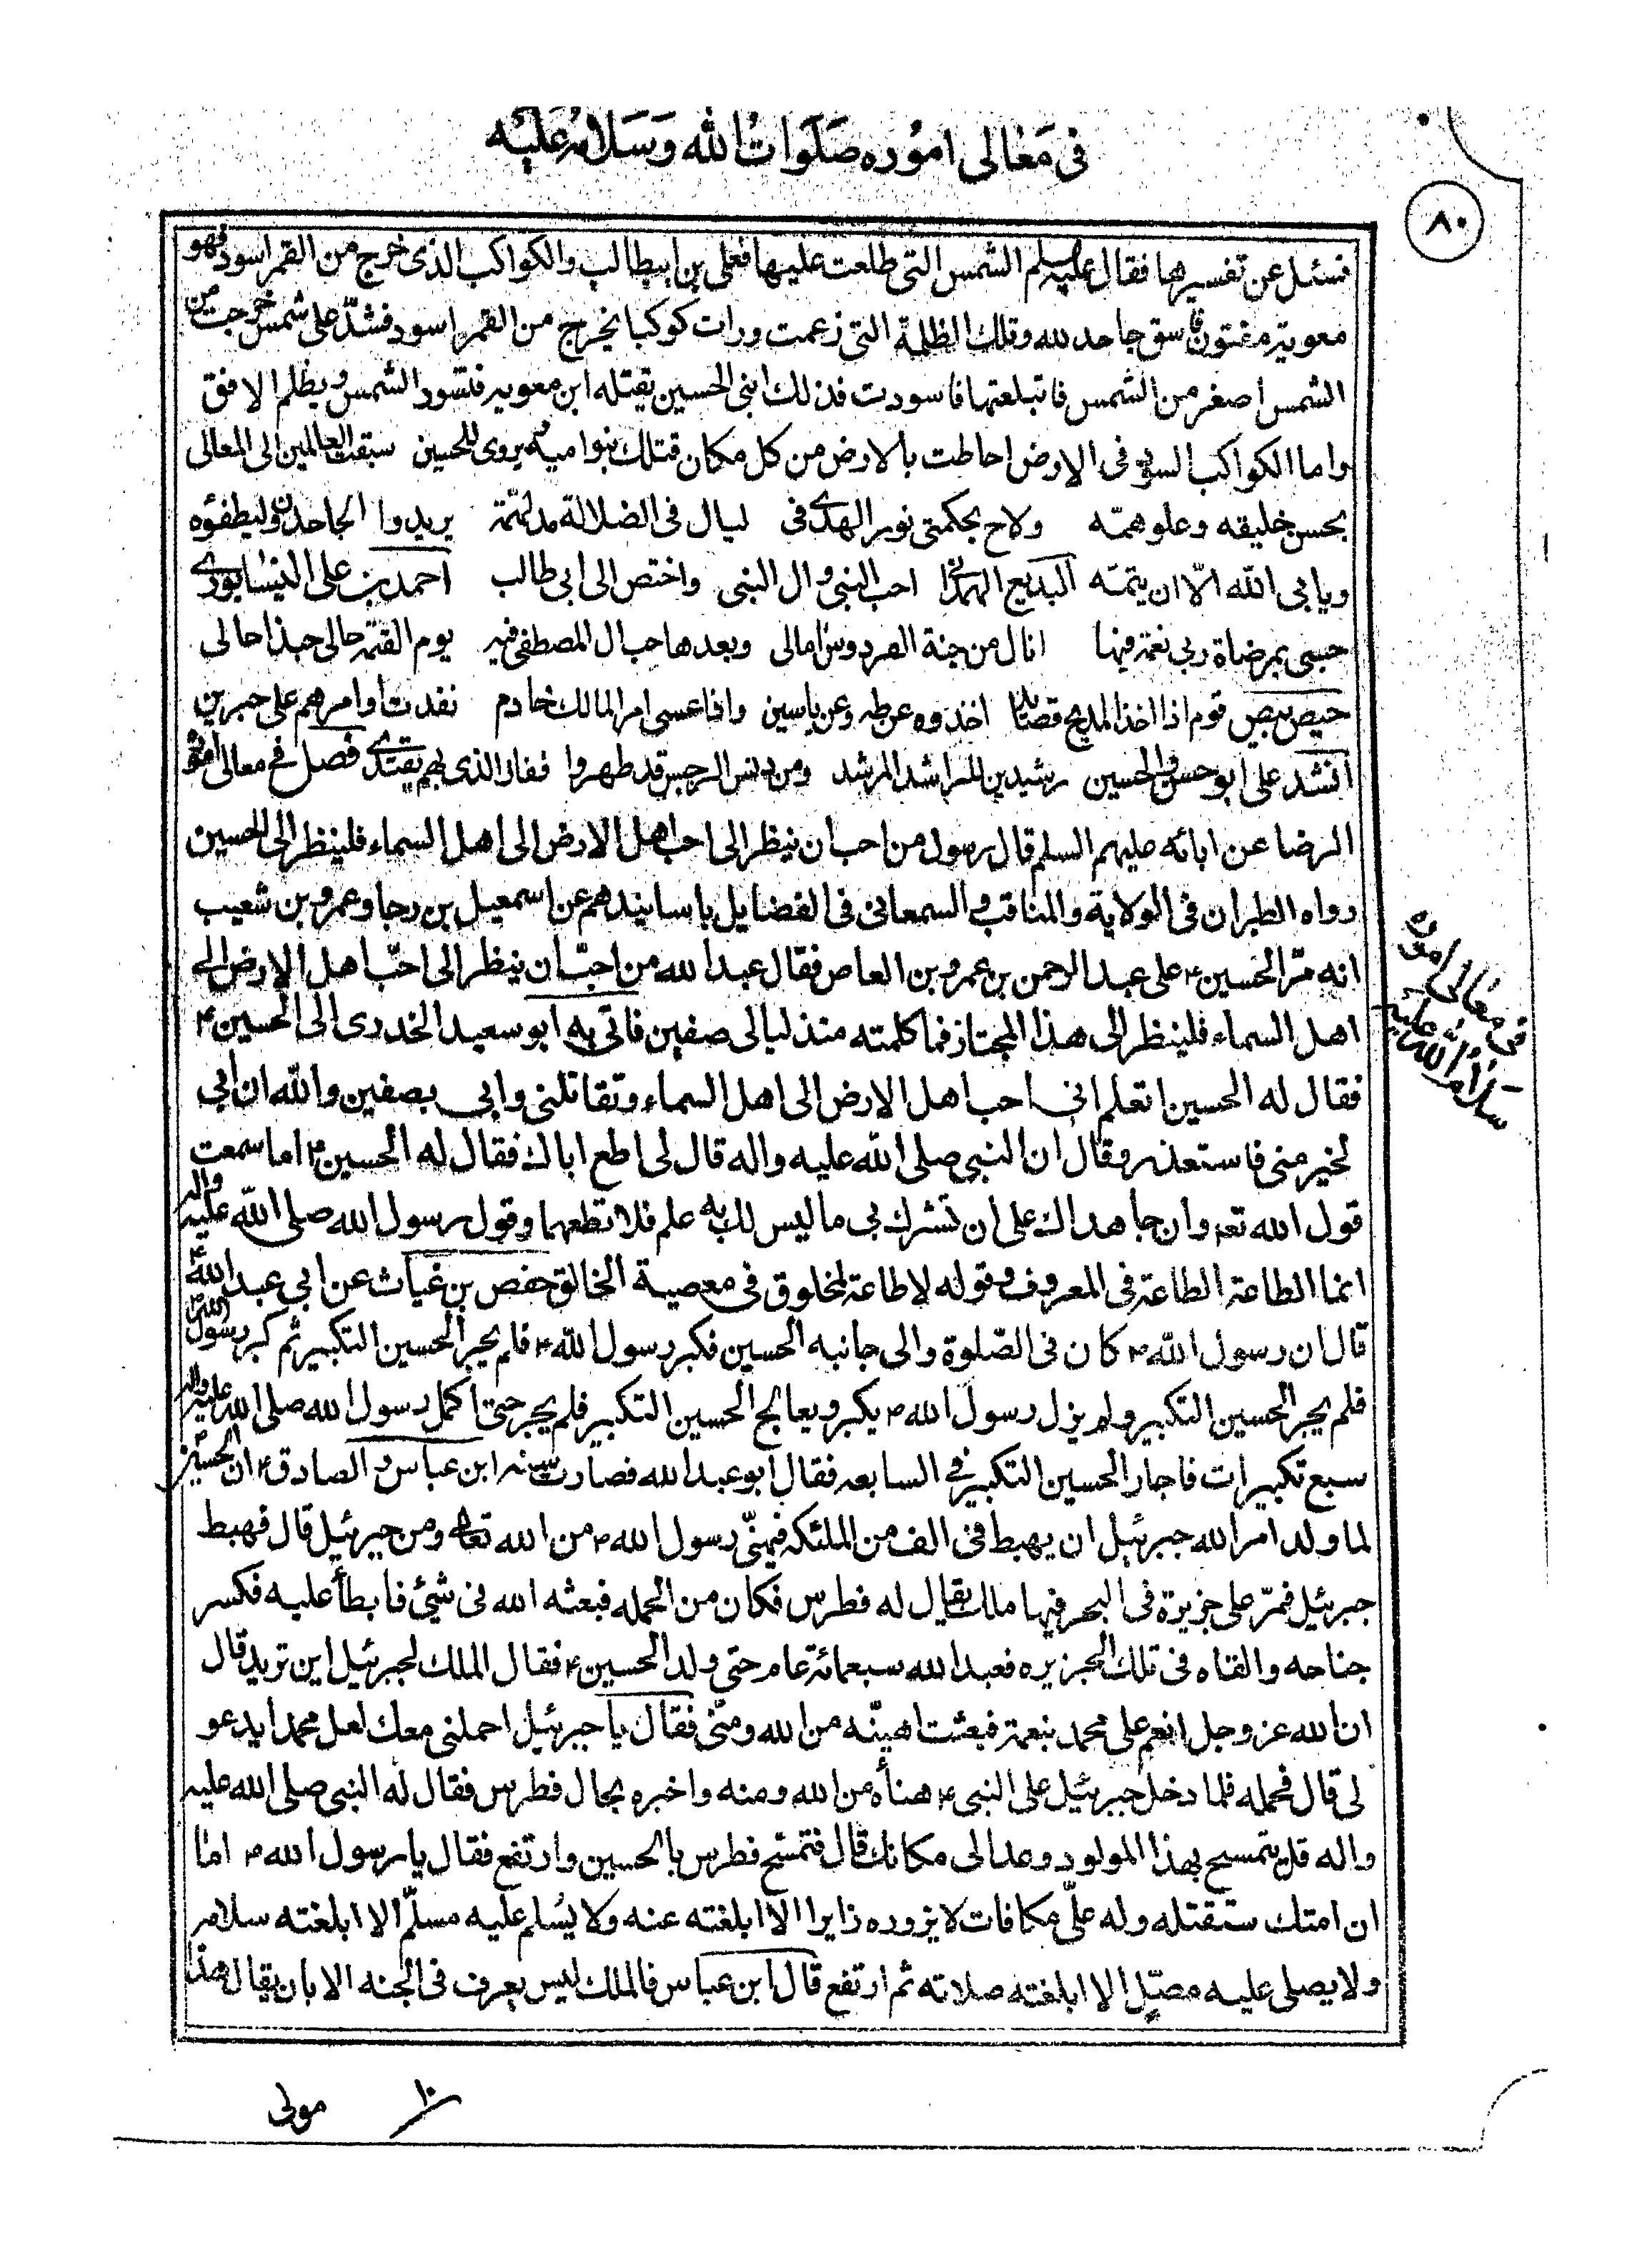 فى مَعٰالى اموُره صَلَوٰاتُ الله وَسَلامُه عَلَيْه
٨٠
فسئل عن تفسيرها فقال عليه السلم الشمس التى طلعت عليها فعلى بن ابيطالب والكواكب الذى خرج من القمر اسود فهو
معوية مفتون فاسق جاحد لله وتلك الظلمة التى زعمت ورات كوكبا يخرج من القمر اسود فشدّ على شمس خرجت من
الشمس اصغر من الشمس فابتلعتها فاسودت فذلك ابنى الحسين يقتله ابن معويه فتسود الشمس ويظلم الافق
واما الكواكب السود فى الارض احاطت بالارض من كل مكان فتلك بنوا ميه يروى للحسين سبقت العالمين الى المعالى
بحسن خليقه وعلو همّه ولاح بحكمتى نور الهدى فى ليال فى الضلالة مدلهّمة يريدوا الجاحدون ليطفؤه
ويابى الله الّا ان يتمّه البديع الهمدانى احب النبى وال النبى واختص الى ابى طالب احمد بن على النيسابورى
حسبى بمرضاة ربى نعمة فيها انال من جنة الفردوس امالى وبعدها حب ال المصطفى فيه يوم القيمة حالى حبذا حالى
حيص بيص قوم اذا اخذ المديح قصائد اخذوه عن طه وعن ياسين واذا عسى امر الممالك خادم نفدت اوامرهم على جبرين
انشد على ابو حسن والحسين رشيد بن المراشد المرشد ومن دنس الرجس قد طهروا ففاز الذى بهم يقتدى فصل فى معالى اموره
الرضا عن ابائه عليهم السلم قال رسول من احب ان ينظر الى احب اهل الارض الى اهل السماء فلينظر الى الحسين
رواه الطبران فى الولاية والمناقب و السمعانى فى الفضايل باسانيدهم عن اسمعيل بن رجا وعمرو بن شعيب
انه مرّ الحسين ع على عبد الرحمن بن عمرو بن العاص فقال عبد الله من احبّ ان ينظر الى احبّ اهل الارض الى
اهل السماء فلينظر الى هذا المجتاز فما كلمته منذ ليالى صفين فاتى به ابو سعيد الخدرى الى الحسين ع
فقال له الحسين اتعلم انى احب اهل الارض الى اهل السماء وتقاتلنى وابى بصفين والله ان ابى
لخير منى فاستعذر وقال ان النبى صلى الله عليه واله قال لى اطع اباك فقال له الحسين ع اما سمعت
قول الله تعا وان جاهداك على ان تشرك بى ما ليس لك به علم فلا تطعهما وقول رسول الله صلى الله عليه واله
انما الطاعة الطاعة فى المعروف وقوله لا طاعة لمخلوق فى معصية الخالق حفص بن غياث عن ابى عبد الله ع
قال ان رسول الله ص كان فى الصّلوة والى جانبه الحسين فكبر رسول الله ص فلم يحر الحسين التكبير ثم كبر رسول الله ص
فلم يحر الحسين التكبير ولم يزل رسول الله ص يكبر ويعالج الحسين التكبير فلم يحر حتى اكمل رسول الله صلى الله عليه واله
سبع تكبيرات فاحار الحسين التكبير فى السابعه فقال ابو عبد الله فصارت سنه ابن عباس و الصادق ع ان الحسين ع
لما ولد امر الله جبرئيل ان يهبط فى الف من الملئكه فيهنّى رسول الله ص من الله تعالى ومن جبرئيل قال فهبط
جبرئيل فمرّ على جزيرة فى البحر فيها ملك يقال له فطرس فكان من الحمله فبعثه الله فى شيئ فابطأ عليه فكسر
جناحه والقاه فى تلك الجزيره فعبد الله سبعمائة عام حتى ولد الحسين ع فقال الملك لجبرئيل اين تريد قال
ان الله عز وجل انعم على محمد بنعمة فبعثت اهنيّه من الله ومنّى فقال يا جبرئيل احملنى معك لعل محمدا يدعو
لى قال فحمله فلما دخل جبرئيل على النبى ص هنأه من الله ومنه واخبره بحال فطرس فقال له النبى صلى الله عليه
واله قل يتمسح بهذا المولود وعد الى مكانك قال فتمسّح فطرس بالحسين وارتفع فقال يا رسول الله ص اما
ان امتك ستقتله وله علىّ مكافات لا يزوره زايرا الا ابلغته عنه ولا يسُلم عليه مسلّم الا ابلغته سلامه
ولا يصلى عليه مصلٍّ الا ابلغته صلاته ثم ارتفع قال ابن عباس فالملك ليس يعرف فى الجنه الا بان يقال هذا
فى معالى اموره
سلام الله عليه
١٠ مولى